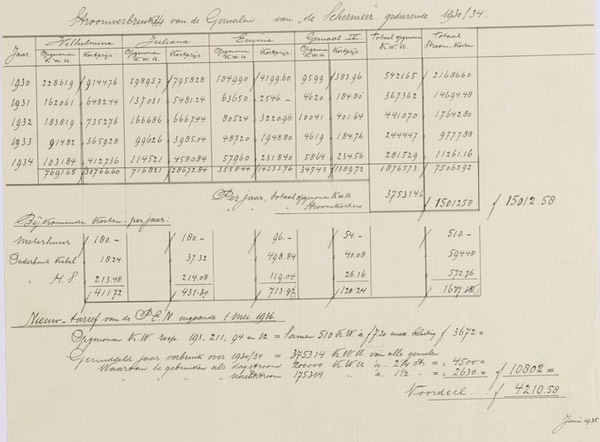 Stroomverbruik van de Gemalen van "de Schermeer" gedurende 1930/34.
Jaar Wilhelmina Juliana Emma Gemaal IV. Totaal opgenomen K.W.U. Totaal Stroom-Kosten
Opgenomen K.W.U. Kostprijs. Opgenomen K.W.U. Kostprijs. Opgenomen K.W.U. Kostprijs. Opgenomen K.W.U. Kostprijs.
1930 228619 9144.76 198957 7958.28 104990 4199.60 9599 383.96 542165 21686.60
1931 162061 6482.44 137031 5481.24 63650 2546.- 4620 184.80 367362 14694.48
1932 183819 7352.76 166686 6667.44 80524 3220.96 10041 401.64 441070 17642.80
1933 91482 3659.28 99626 3985.04 48720 1948.80 4619 184.76 244447 9777.88
1934 103184 4127.36 114521 4580.84 57960 2318.40 5864 234.56 281529 11261.16
769165 30766.60 716821 28672.84 355844 14233.76 34743 1389.72 1876573 75062.92
Per jaar, totaal opgenomen K.W.U. 375314.6
" " " Stroomkosten f 15012.58 f 15012.58
Bijkomende kosten: per jaar:
Meterhuur f 180.- f 180.- f 96.- f 54.- f 510.-
Onderhoud Kabel 18.24 37.32 498.84 40.08 594.48
" H.S. 213.48 214.08 119.04 26.16 572.76
f 411.72 f 431.40 f 713.92 f 120.24 f 1677.28
Nieuw-tarief van de P.E.N. ingaande 1 Mei 1936.
Opgenomen K.W. resp. 193, 211, 94 en 12 = Samen 510 K.W. à f 7.20 max. belasting f 3672.=
Gemiddeld jaar verbruik over 1930/34 = 375314 K.W.U. van alle gemalen
Waarvan te gebruiken als dagstroom 200000 K.W.U. à 2¼ cts = " 4500.=
" " " " nachtstroom 175314 " à 1½ " = " 2630.= f 10802.=
Voordeel. f 4210.58
Juni 1935.